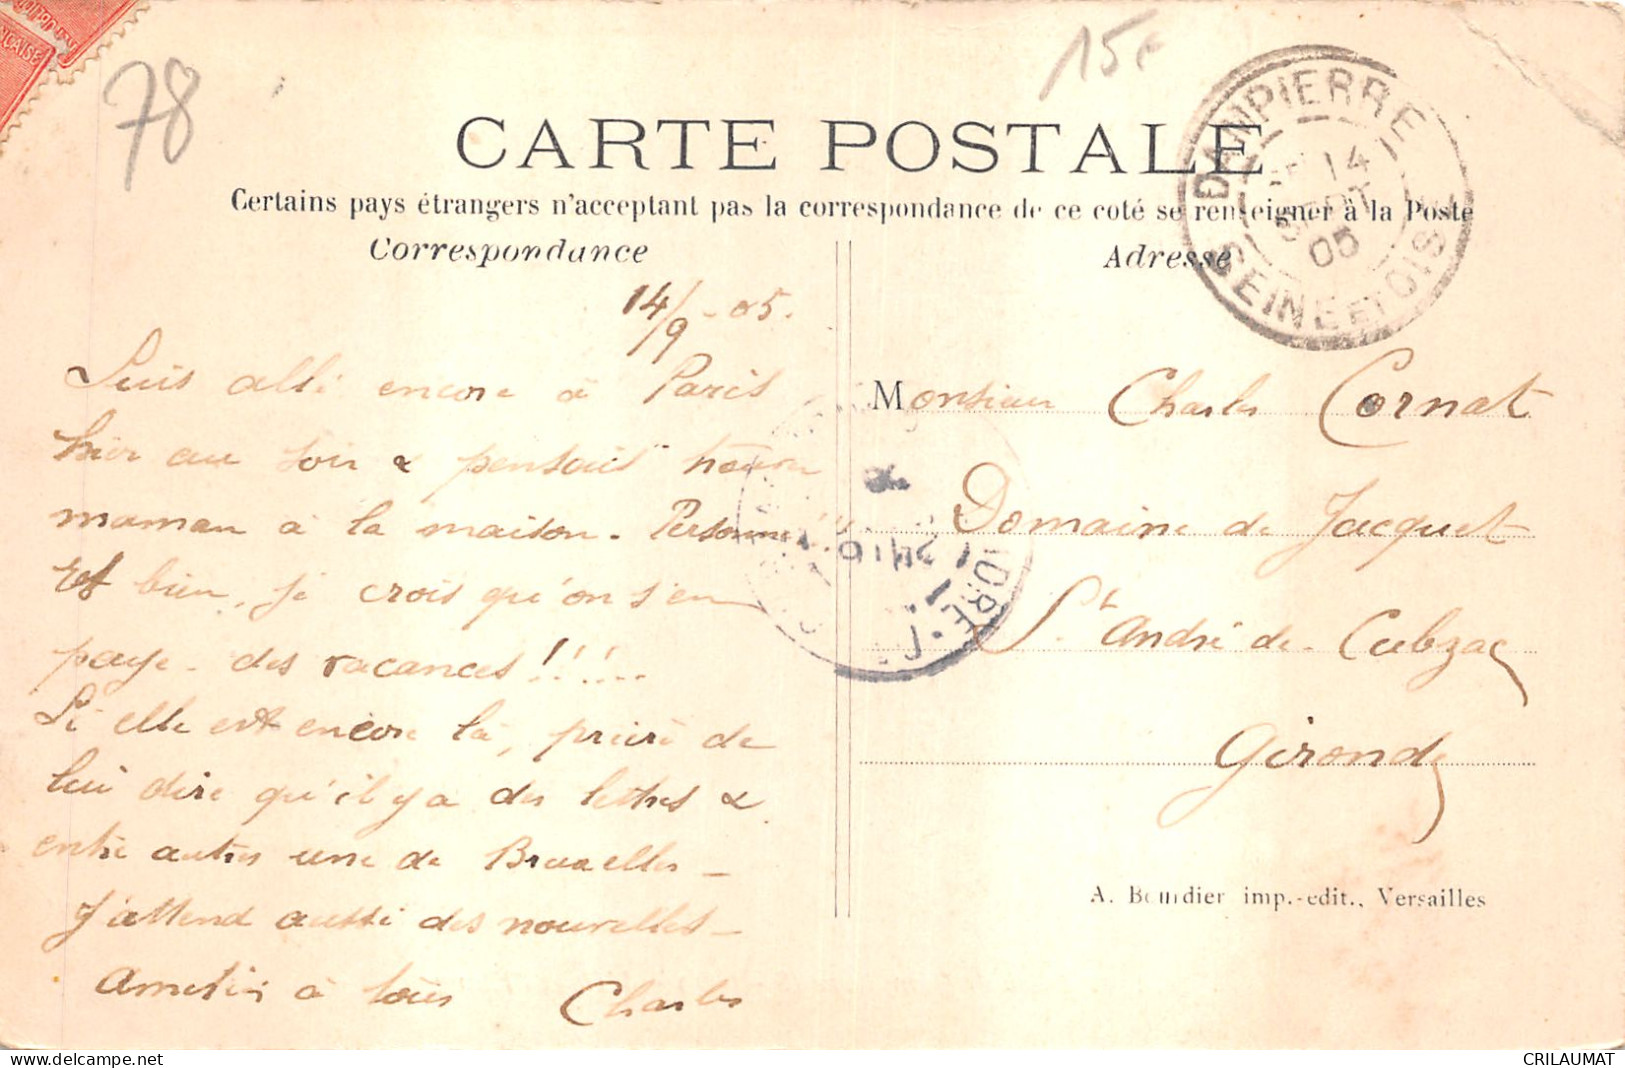 78
15€
CARTE POSTALE
Certains pays étrangers n'acceptant pas la correspondance de ce coté se renseigner à la Poste
Correspondance
Adresse
DAMPIERRE
14
SEPT
05
SEINE ET OISE
14/9-05.
Suis allé encore à Paris
hier au soir & pensais trouver
maman à la maison. Personne
Eh bien, je crois qu'on s'en
paye des vacances!!!...
Si elle est encore là, prière de
lui dire qu'il y a des lettres &
entre autres une de Bruxelles -
J'attend aussi des nouvelles -
Amitiés à tous Charles
Monsieur Charles Cornat
Domaine de Jacquet
St André de Cubzac
Gironde
A. Bourdier imp.-edit., Versailles
CRILAUMAT
www.delcampe.net